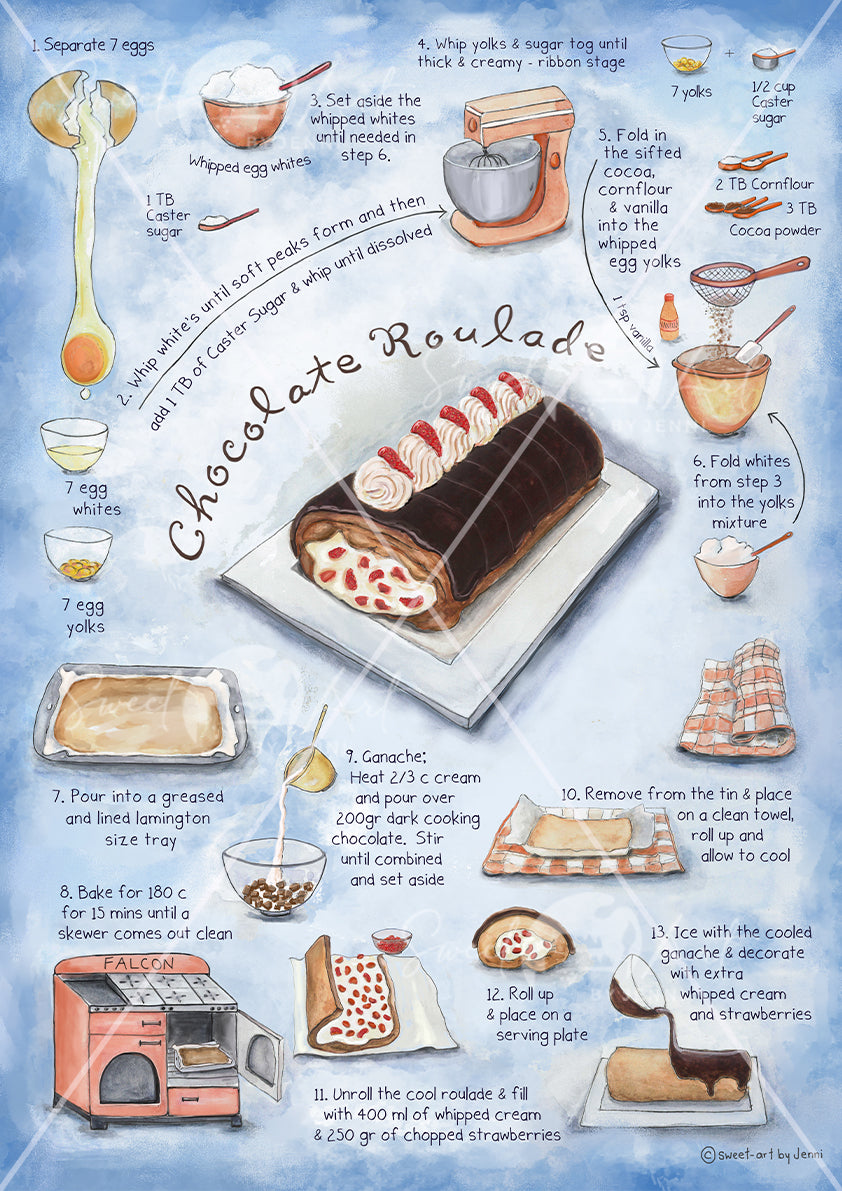 1. Separate 7 eggs
Whipped egg whites
3. Set aside the
whipped whites
until needed in
step 6.
4. Whip yolks & sugar tog until
thick & creamy - ribbon stage
7 yolks
+
1/2 cup
Caster
sugar
1 TB
Caster
sugar
2. Whip white's until soft peaks form and then
add 1 TB of Caster Sugar & whip until dissolved
5. Fold in
the sifted
cocoa,
cornflour
& vanilla
into the
whipped
egg yolks
2 TB Cornflour
3 TB
Cocoa powder
1 tsp vanilla
Chocolate Roulade
7 egg
whites
7 egg
yolks
6. Fold whites
from step 3
into the yolks
mixture
7. Pour into a greased
and lined lamington
size tray
8. Bake for 180 c
for 15 mins until a
skewer comes out clean
FALCON
9. Ganache;
Heat 2/3 c cream
and pour over
200gr dark cooking
chocolate. Stir
until combined
and set aside
10. Remove from the tin & place
on a clean towel,
roll up and
allow to cool
11. Unroll the cool roulade & fill
with 400 ml of whipped cream
& 250 gr of chopped strawberries
12. Roll up
& place on a
serving plate
13. Ice with the cooled
ganache & decorate
with extra
whipped cream
and strawberries
©sweet-art by Jenni
Sweet Art
BY JENNI